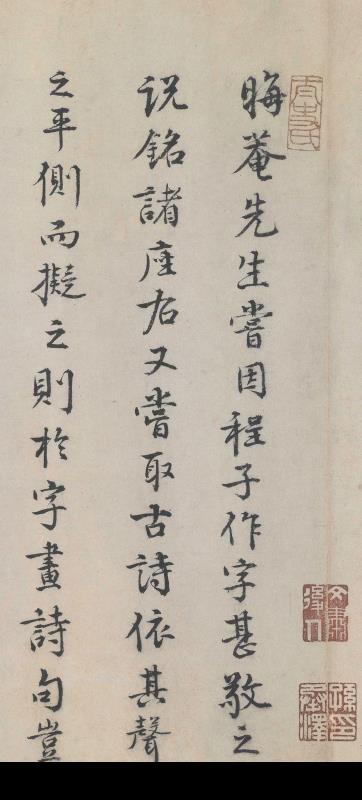 晦菴先生嘗因程子作字甚敬之
説銘諸座右又嘗取古詩依其聲
之平側而擬之則於字畫詩句豈